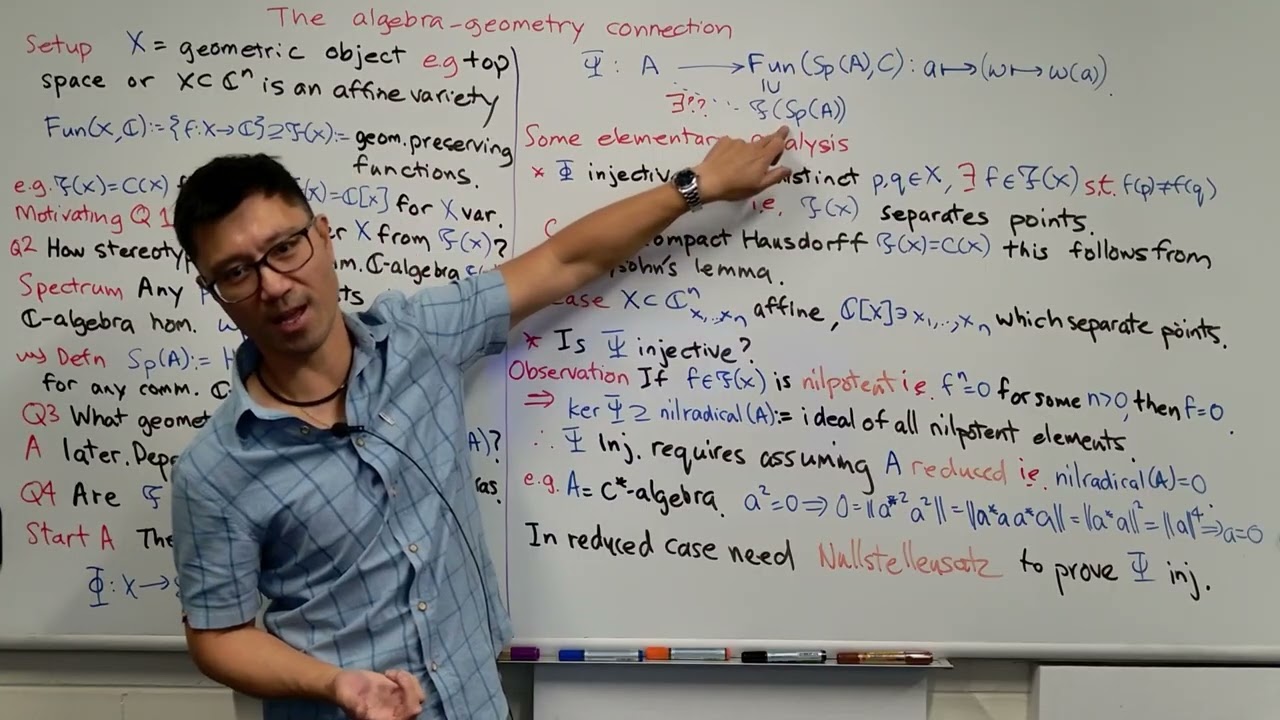 The algebra-geometry connection
Setup X = geometric object e.g top
space or X⊂ℂⁿ is an affine variety
Fun(X,ℂ):={f:X→ℂ}⊇𝓕(X):= geom. preserving
functions.
e.g. 𝓕(X)=C(X) (X)=ℂ[X] for X var.
Motivating Q 1
X from 𝓕(X)?
Q2 How m. ℂ-algebra
Spectrum Any
ℂ-algebra hom. w
⇝ Defn Sp(A):=
for any comm.
Q3 What
A later.
Q4 Are 𝓕
Start A The
Φ: X→
Ψ: A ⟶ Fun(Sp(A),ℂ): a↦(w↦w(a)).
∪
∃?? 𝓕(Sp(A))
Some elementary analysis
* Φ distinct p,q∈X, ∃ f∈𝓕(X) s.t. f(p)≠f(q)
i.e. 𝓕(X) separates points.
compact Hausdorff 𝓕(X)=C(X) this follows from
lemma.
Case X⊂ℂⁿ x₁,..,xₙ affine, ℂ[X]∋x₁,..,xₙ which separate points.
* Is Ψ injective?
Observation If f∈𝓕(X) is nilpotent i.e. fⁿ=0 for some n>0, then f=0.
⇒ ker Ψ ⊇ nilradical(A):= ideal of all nilpotent elements.
∴ Ψ Inj. requires assuming A reduced i.e. nilradical(A)=0
e.g. A= C*-algebra. a²=0⇒0=||a*²a²||=||a*aa*a||=||a*a||²=||a||⁴⇒a=0
In reduced case need Nullstellensatz to prove Ψ inj.